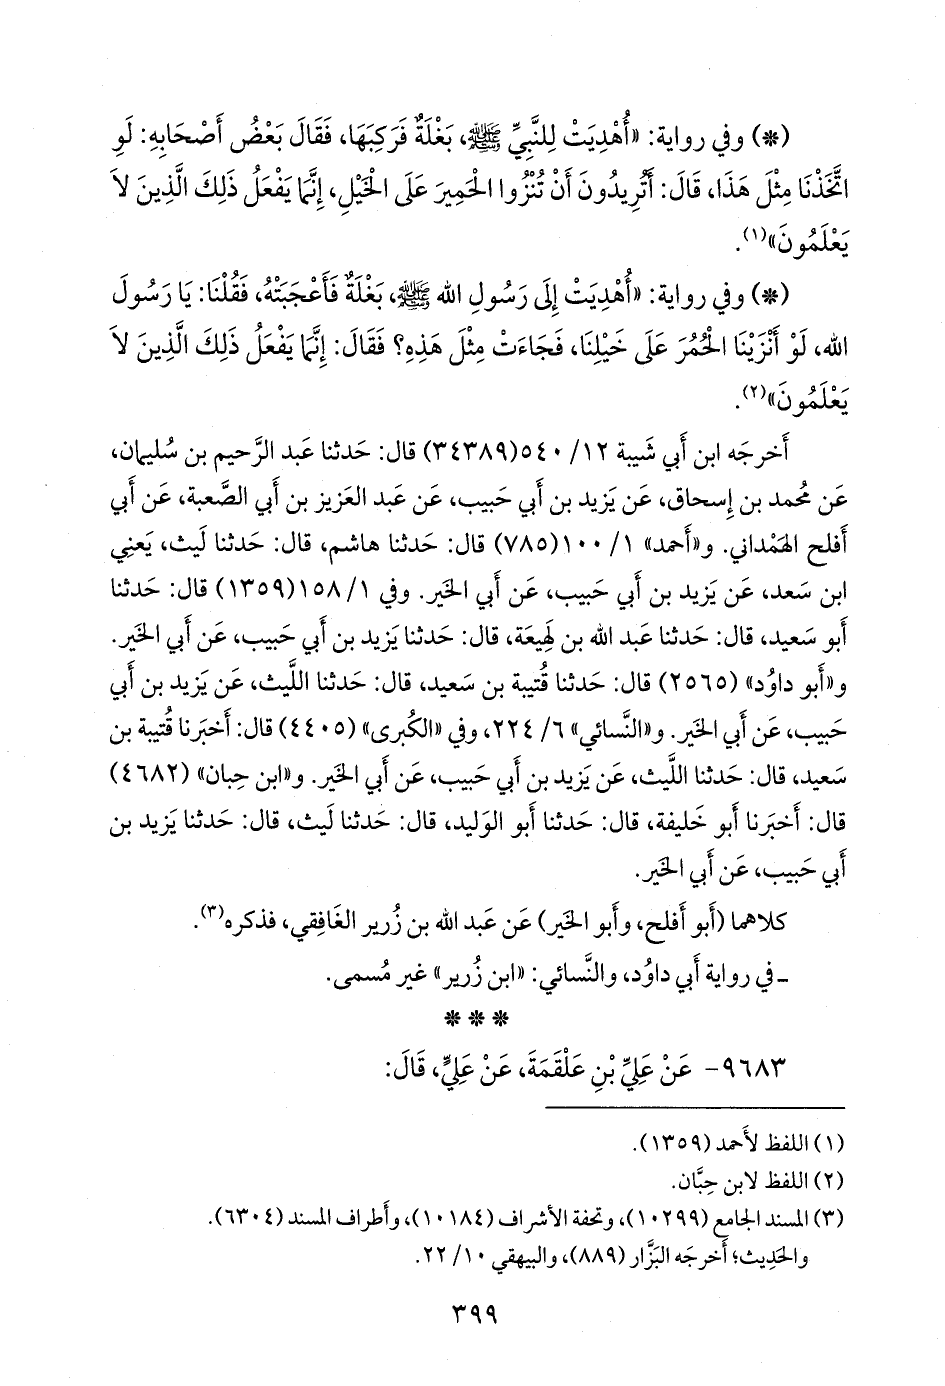 (*) وفي رواية: «أُهْدِيَتْ لِلنَّبِيِّ ﷺ، بَغْلَةٌ فَرَكِبَهَا، فَقَالَ بَعْضُ أَصْحَابِهِ: لَوِ
اتَّخَذْنَا مِثْلَ هَذَا، قَالَ: أَتُرِيدُونَ أَنْ تُنْزُوا الْحَمِيرَ عَلَى الْخَيْلِ، إِنَّمَا يَفْعَلُ ذَلِكَ الَّذِينَ لاَ
يَعْلَمُونَ»(١).
(*) وفي رواية: «أُهْدِيَتْ إِلَى رَسُولِ الله ﷺ، بَغْلَةٌ فَأَعْجَبَتْهُ، فَقُلْنَا: يَا رَسُولَ
الله، لَوْ أَنْزَيْنَا الْحُمُرَ عَلَى خَيْلِنَا، فَجَاءَتْ مِثْلَ هَذِهِ؟ فَقَالَ: إِنَّمَا يَفْعَلُ ذَلِكَ الَّذِينَ لاَ
يَعْلَمُونَ»(٢).
أَخرجَه ابن أَبي شَيبة ١٢/ ٥٤٠(٣٤٣٨٩) قال: حَدثنا عَبد الرَّحيم بن سُليمان،
عَن مُحمد بن إِسحاق، عَن يَزيد بن أَبي حَبيب، عَن عَبد العَزيز بن أَبي الصَّعبة، عَن أَبي
أَفلح الهَمْداني. و«أَحمد» ١/ ١٠٠(٧٨٥) قال: حَدثنا هاشم، قال: حَدثنا لَيث، يَعنِي
ابن سَعد، عَن يَزيد بن أَبي حَبيب، عَن أَبي الخَير. وفي ١/ ١٥٨(١٣٥٩) قال: حَدثنا
أَبو سَعيد، قال: حَدثنا عَبد الله بن لَهِيعَة، قال: حَدثنا يَزيد بن أَبي حَبيب، عَن أَبي الخَير.
و«أَبو داوُد» (٢٥٦٥) قال: حَدثنا قُتيبة بن سَعيد، قال: حَدثنا اللَّيث، عَن يَزيد بن أَبي
حَبيب، عَن أَبي الخَير. و«النَّسائي» ٦/ ٢٢٤، وفي «الكُبرى» (٤٤٠٥) قال: أَخبَرنا قُتيبة بن
سَعيد، قال: حَدثنا اللَّيث، عَن يَزيد بن أَبي حَبيب، عَن أَبي الخَير. و«ابن حِبان» (٤٦٨٢)
قال: أَخبَرنا أَبو خَليفة، قال: حَدثنا أَبو الوَليد، قال: حَدثنا لَيث، قال: حَدثنا يَزيد بن
أَبي حَبيب، عَن أَبي الخَير.
كلاهما (أَبو أَفلح، وأَبو الخَير) عَن عَبد الله بن زُرير الغَافِقي، فذكره(٣).
ـ في رواية أَبي داوُد، والنَّسائي: «ابن زُرير» غير مُسمى.
* * *
٩٦٨٣- عَنْ عَلِيِّ بْنِ عَلْقَمَةَ، عَنْ عَلِيٍّ، قَالَ:
(١) اللفظ لأَحمد (١٣٥٩).
(٢) اللفظ لابن حِبَّان.
(٣) المسند الجامع (١٠٢٩٩)، وتحفة الأشراف (١٠١٨٤)، وأَطراف المسند (٦٣٠٤).
والحَدِيث؛ أَخرجَه البَزَّار (٨٨٩)، والبيهقي ١٠/ ٢٢.
٣٩٩